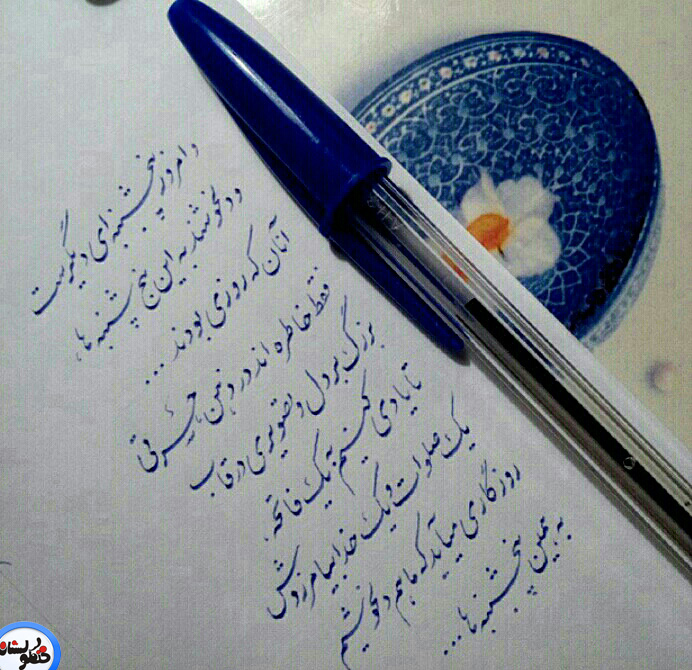 و امروز پنجشنبه ای دیگرست
و دلخوشند به این پنج شنبه ها،
آنان که روزی بودند ...
فقط خاطره اند در ذهن، حسرتی
بزرگ بر دل و تصویری در قاب
تا یادی کنیم به یک فاتحه،
یک صلوات و یک خدابیامرزدش
روزگاری میآید که ما هم دلخوشیم
به همین پنجشنبه ها ...